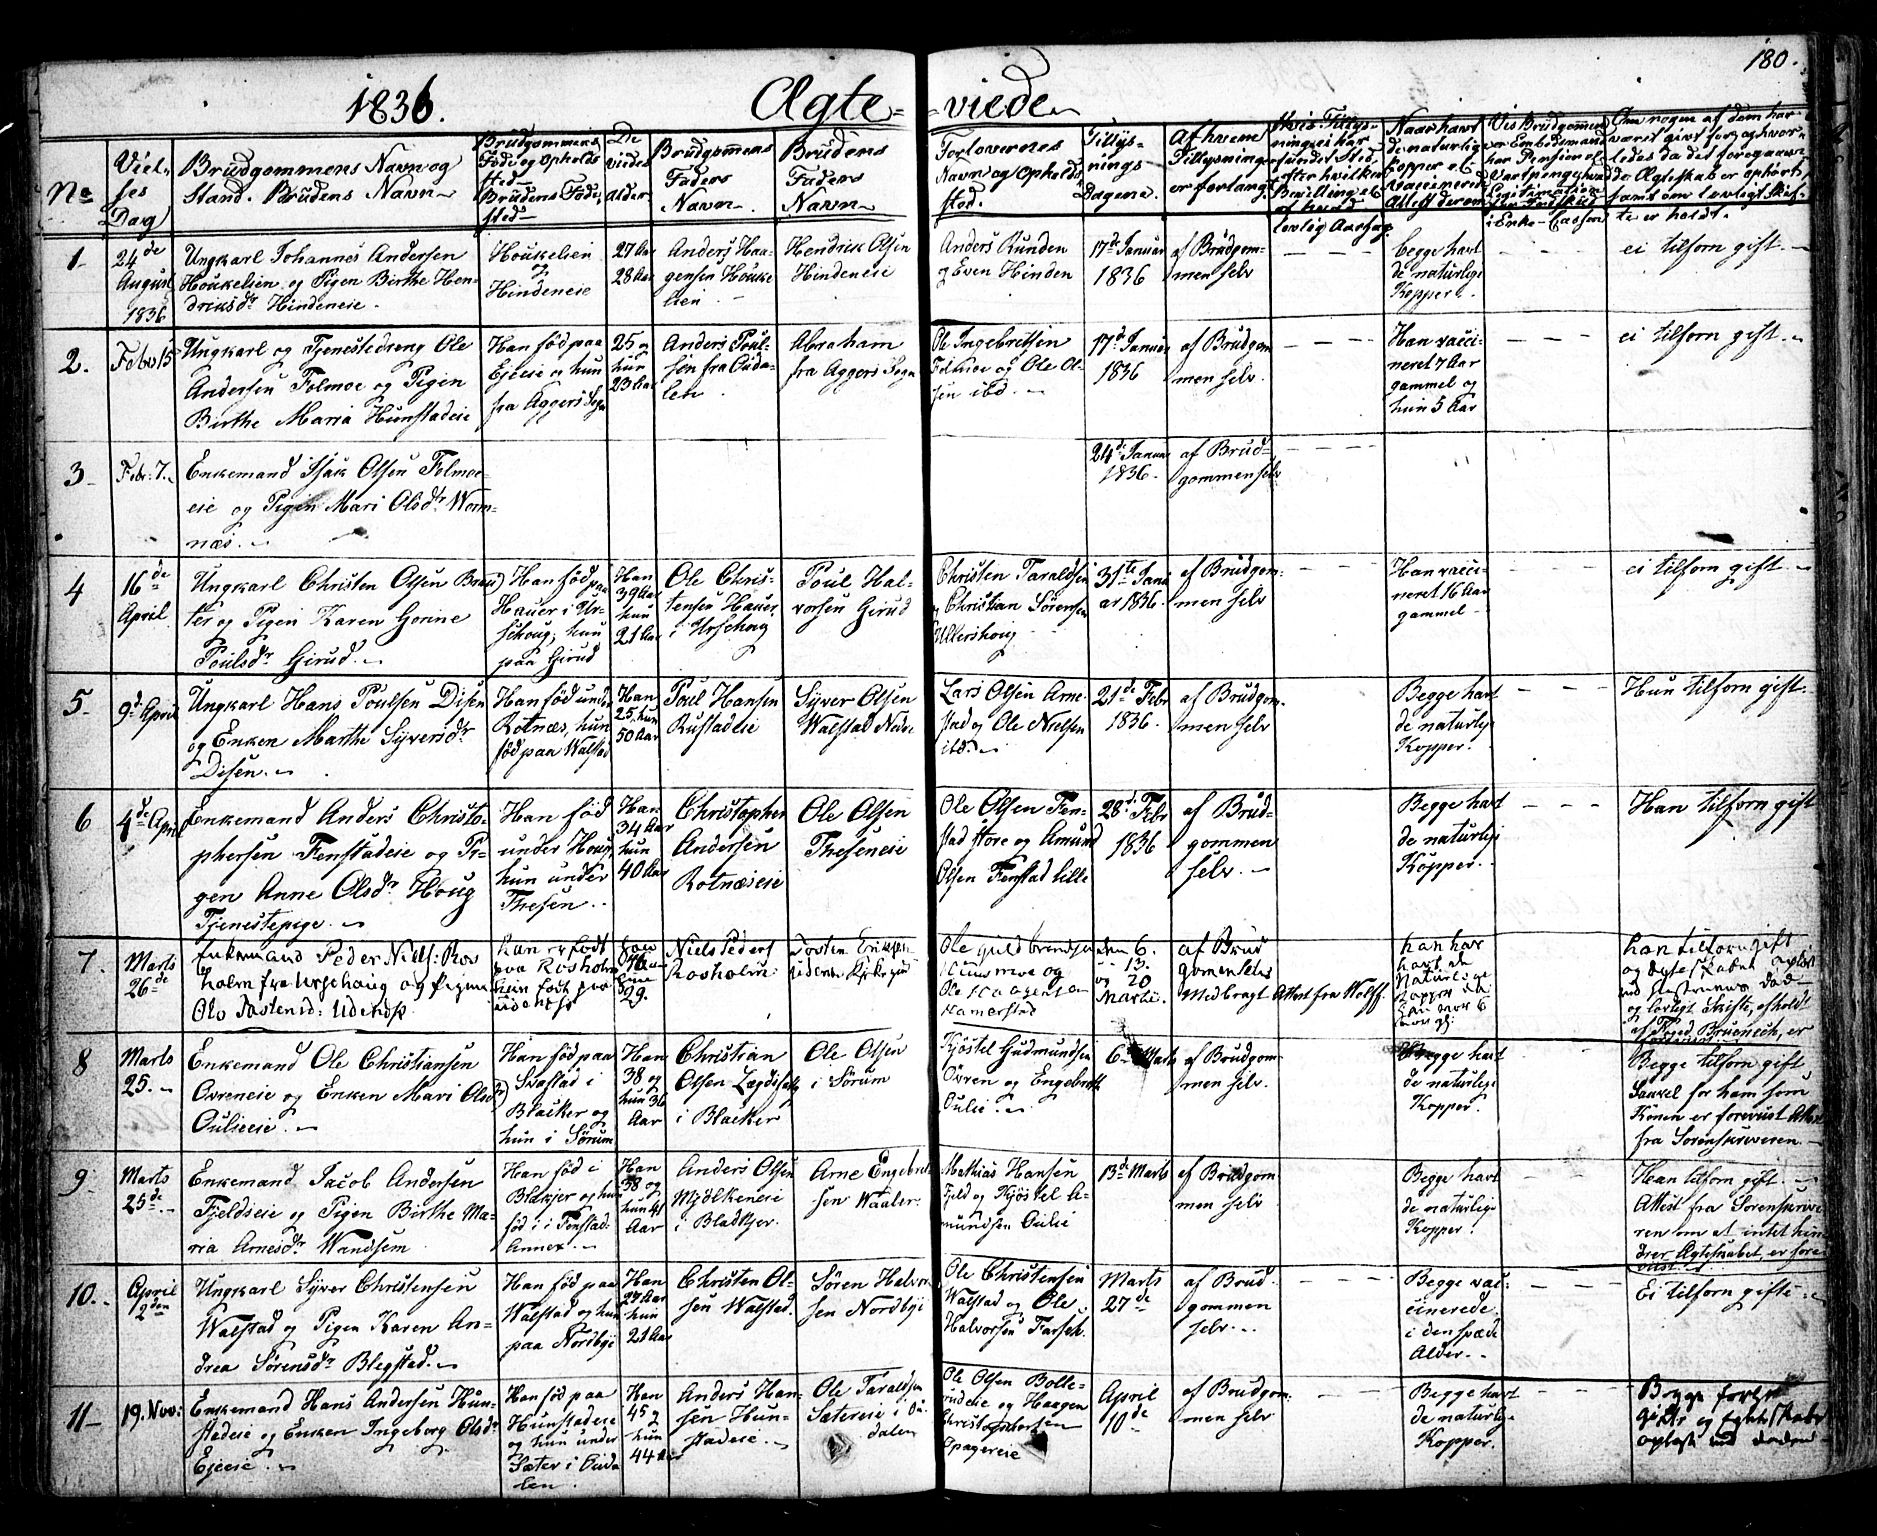 180.
1836. Ægte- -viede
No
Viel-
ses
Dag
Brudgommens Navn og
Stand. Brudens Navn
Brudgommens
Føde og Opholds
sted
Brudens Føde-
sted
De
viedes
Alder
Brudgommens
Faders
Navn
Brudens
Faders
Navn
Forlovernes
Navn og Opholds
sted.
Tillys-
nings
Dagene.
Af hvem
Tillysningen
er forlangt
Naar havt
de naturlige
Kopper el.
vaccinerede
Om nogen af dem har
været givt før, og hvor-
ledes da det foregaaen-
de Ægteskab er ophørt,
samt om lovligt Skif-
te er holdt.
1
24de
August
1836
Ungkarl Johannes Andersen
Houkelien og Pigen Birthe Hen-
driksdr Hindeneie.
Houkelien
og
Hindeneie
27 Aar
28 Aar
Anders Haa-
gensen Houke
lien
Hendrik Olsen
Hindeneie
Anders Runden
og Even Hinden
17d Januar
1836
af Brudgom-
men selv
begge havt
de naturlige
Kopper
ei tilforn gift.
2.
Febr 5
Ungkarl og Tjenestedreng Ole
Andersen Folmoe og Pigen
Birthe Maria Hunstadeie
Han fød paa
Ejeeie og hun
fra Aggers Sogn
25 og
hun
23 Aar
Anders Poul-
sen fra Ouda-
len
Abraham
fra Aggers Sogn
Ole Ingebretsen
Folmoe og Ole Ol-
sen ibd.
17d Januar
1836
af Brudgom
men selv.
Han vacci-
neret 7 Aar
gammel og
hun 5 Aar
ei tilforn gift.
3
Febr: 7.
Enkemand Isak Olsen Folmoe-
eie og Pigen Mari Olsdr Worm-
næs.
24de Januar
1836.
af Brud-
gommen selv
4
16de
April
Ungkarl Christen Olsen Brua-
ter og Pigen Karen Gorine
Poulsdr Girud.
Han fød paa
Hauer i Ur-
schoug, hun
paa Girud
Han
39 Aar
hun
21 Aar
Ole Chris-
tensen Hauer
i Urschoug
Poul Hal-
vorsen Girud
Christen Taraldsen
og Christian Sørensen
Ullershoug
31te Janu
ar 1836.
af Brudgom-
men selv
Han vacci-
neret 16 Aar
gammel
ei tilforn gift
5
9d April
Ungkarl Hans Poulsen Disen
og Enken Marthe Syversdr
Disen.
Han fød under
Rotnæs, hun
fød paa Walstad
Han
25, hun
50 Aar
Poul Hansen
Rustadeie
Syver Olsen
Walstad Nedre
Lars Olsen Arne-
stad og Ole Nielsen
ibd.
21de Febr
1836.
af Brudgom-
men selv
Begge havt
de naturlige
Kopper.
Hun tilforn gift.
6
4de April
Enkemand Anders Christo-
phersen Fenstadeie og Pi-
gen Anne Olsdr Houg
Tjenestepige.
Han fød
under Houg,
hun under
Thesen.
Han
34 Aar
hun
40 Aar
Christopher
Andersen
Rotnæseie
Ole Olsen
Theseneie
Ole Olsen Fen-
stad store og Amund
Olsen Fenstad lille
28de Febr
1836
af Brud-
gommen
selv.
Begge havt
de naturlige
Kopper.
Han tilforn gift
7.
Marts
26de
Enkemand Peder Niels: Ros
holm fra Urschoug og Pigen
Han er født
paa Rosholm
29.
Niels Peders
Rosholm
Ole Guldbrandsen
og
Ole Haagensen
Hamerstad
den 6.
13.
og 20
Marti.
af Brud
gomen selv
Medbragt Attest fra Wolff.
han har
havt de
Naturlige
Kopper
han tilforn gift
og Ægteskabet opløst
ved
og lovligt Skifte, afholdt
8
Marts
25.
Enkemand Ole Christiansen
Ovreneie og Enken Mari Olsdr
Oulieeie.
Han fød paa
Svafstad i
Blacker og
hun i Sørum
Han
38 og
hun 36
Aar
Christian
Olsen
i Blacker
Ole Olsen
i Sørum
Kjøstel Gudmundsen
Ovren og Engebreth
Oulie.
6te Marts
af Brudgom-
men selv.
Begge havt
de naturlige
Kopper.
Begge tilforn gift
Saavel for ham som
Konen er forevist Attest
fra Sorenskriveren.
9
Marts
25de
Enkemand Jacob Andersen
Fjeldseie og Pigen Birthe Ma-
ria Arnesdr Wandsem
Han fød i
Blakjer og hun
fød i Fenstad
Annex.
Han
38 og
hun 41
Aar
Anders Olsen
Mjølkeneie
i Blackjer.
Arne Engebret-
sen Waaler.
Mathias Hansen
Fjeld og Kjøstel A-
mundsen Oulie
13de Marts
af Brudgom
men selv
Begge havt
de naturlige
Kopper.
Han tilforn gift.
Attest fra Sorenskrive-
ren om at intet hin-
drer Ægteskabet, er fore
vist
10.
April
2den
Ungkarl Syver Christensen
Walstad og Pigen Karen An-
drea Sørensdr Blegstad.
Han fød paa
Walstad og hun
paa Nordbye
Han
27 Aar
hun
21 Aar
Christen Ol-
sen Walstad.
Søren Halvor
sen Nordbye
Ole Christensen
Walstad og Ole
Halvorsen Farseh.
Marts
27de
af Brud-
gommen
selv.
Begge vac-
cinerede
i den spæde
Alder.
Ei tilforn gifte.
11
19. Nov:
Enkemand Hans Andersen Hun-
stadeie og Enken Ingeborg Olsdr
Ejeeie.
Han fød paa
Hunstadeie
og hun under
Sæter i Ouda
len.
Han
45 og
hun
44 Aar
Anders Han-
sen Hun-
stadeie.
Ole Taraldsen
Sætereie i Ou-
dalen
Ole Olsen Bolle-
rudeie og Haagen
Christophersen
Spagereie
April
10de
af Brudgom-
men selv
Begge havt
de naturlige
Kopper.
Begge forhen
gifte og Egteskabet
opløst ved Døden